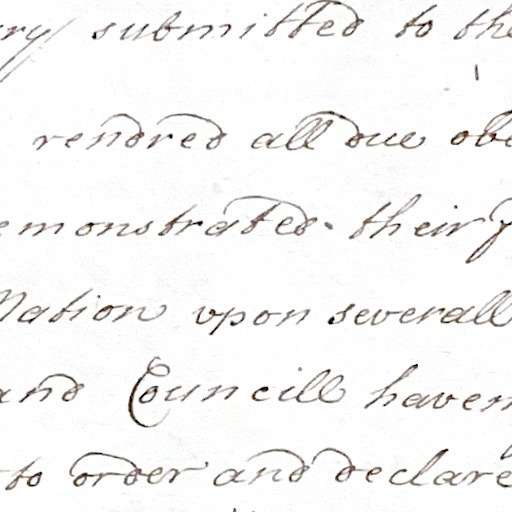 ry submitted to the
rendred all due obe
emonstrated their
Nation upon severall
and Councill have
to order and declare